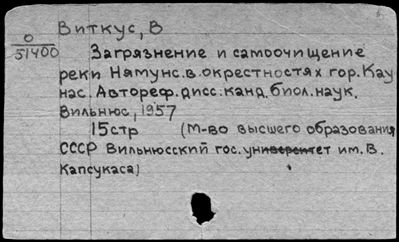 Виткус, В
О
51400
Загрязнение и самоочищение
реки Нямунс. в. окрестностях гор. Кау
нас. Автореф. дисс. канд. биол. наук.
Вильнюс, 1957
15стр (М-во высшего образования
СССР Вильнюсский гос. университет им. В.
Капсукаса)